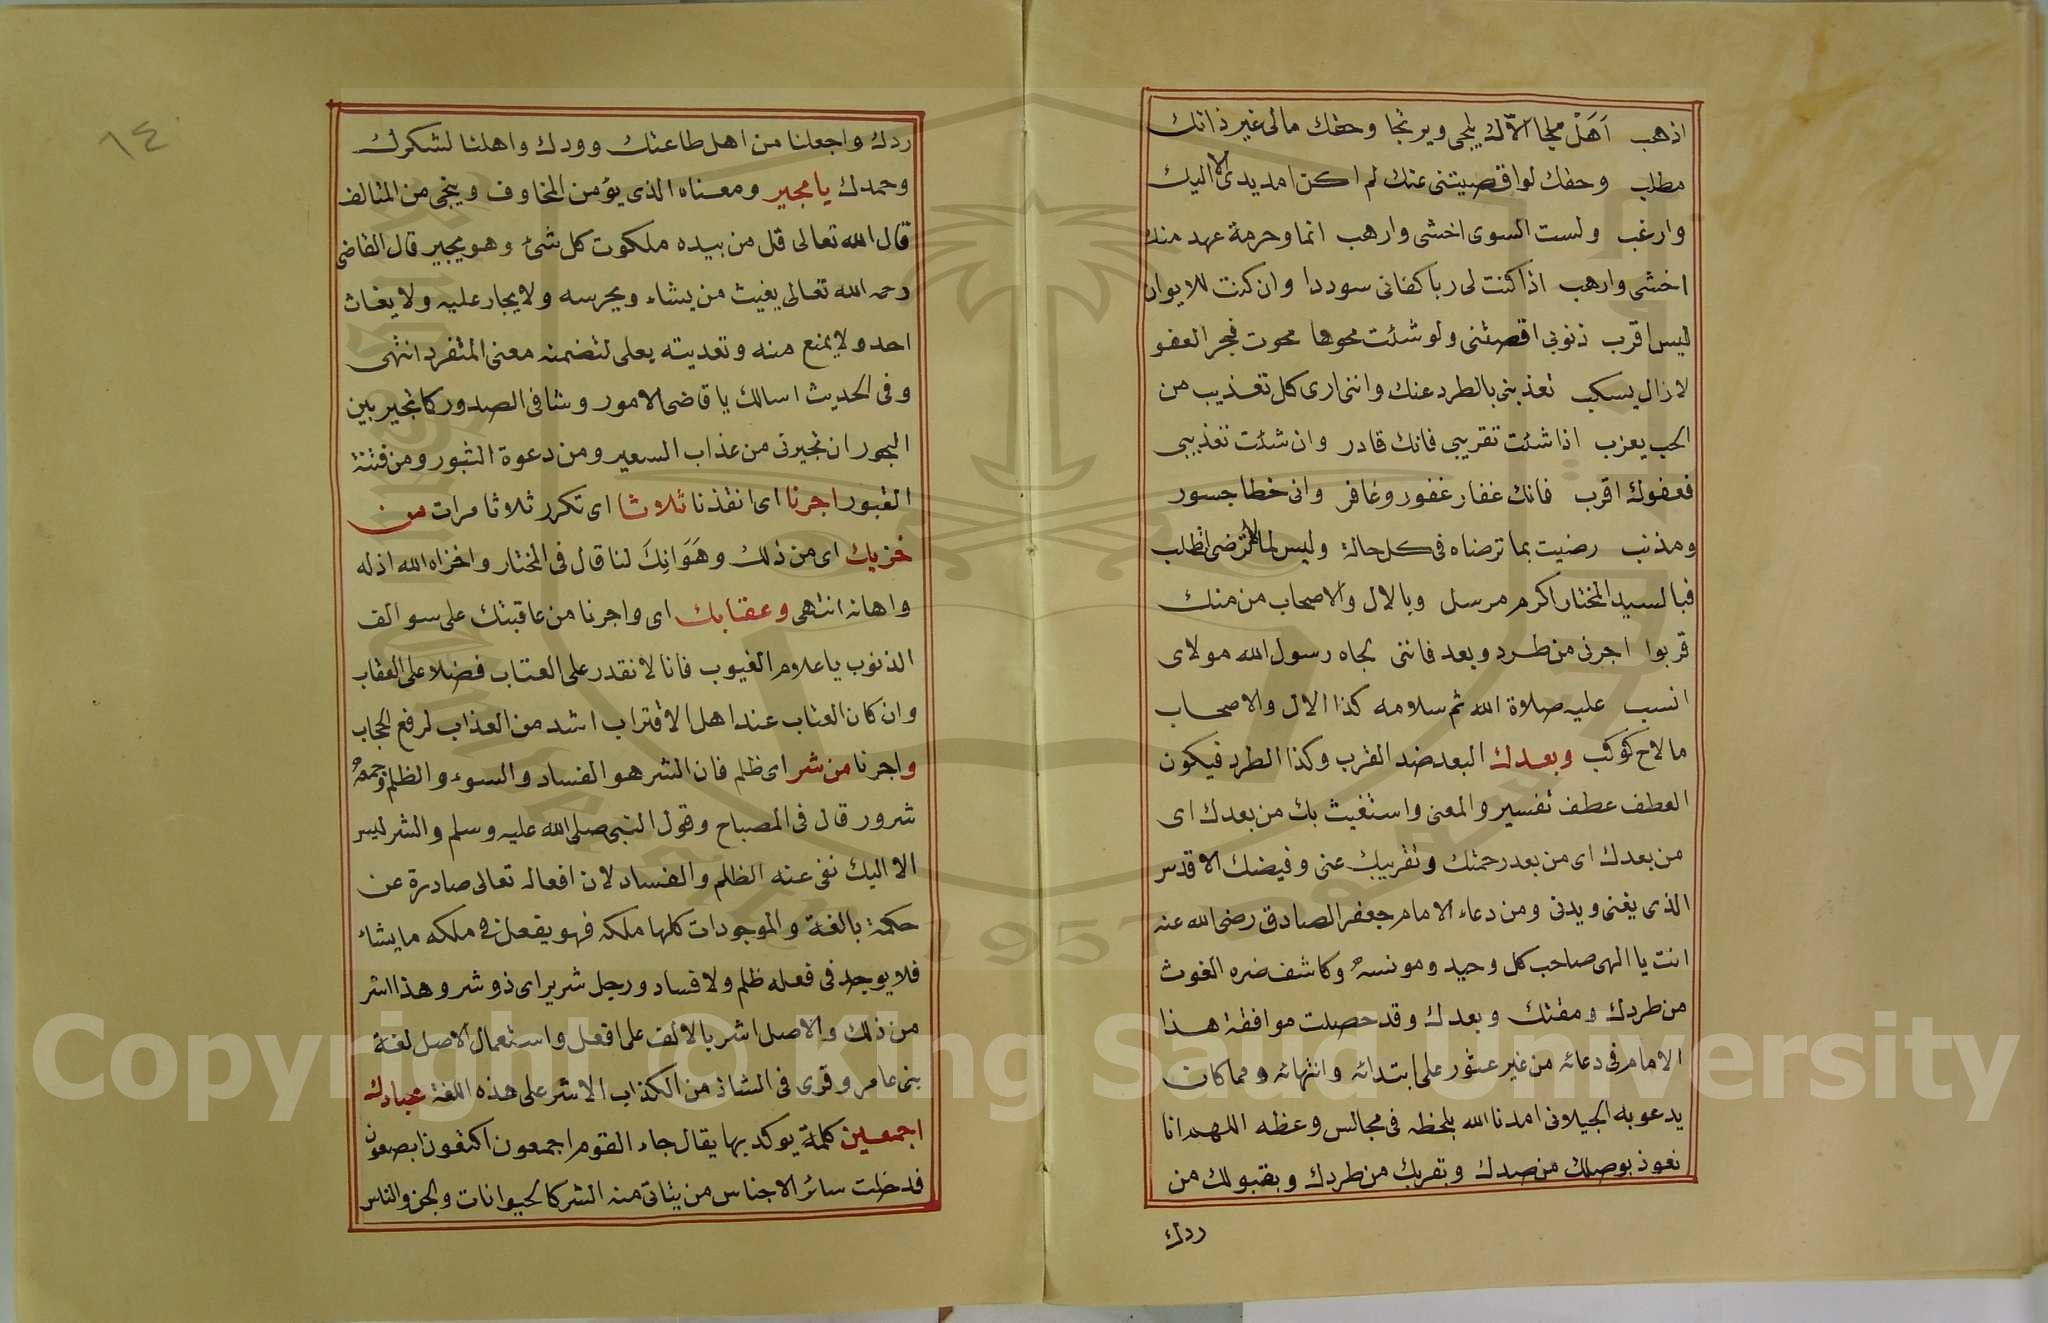 اذهب اَهَلْ ملجا الاك يلجى ويرتجا وحقك مالى غير ذاتك
مطلب وحقك لو اقصيتنى عنك لم اكن امد يدى الا اليك
وارغب ولست السوى اخشى وارهب انما وحرمة عهد منك
اخشى وارهب اذا كنت لى ربا كفانى سوددا وان كنت للايوان
ليس اقرب ذنوبى اقصتنى ولو شئت محوها محوت فبحر العفو
لا زال يسكب تعذبنى بالطرد عنك واننى ارى كل تعذيب من
الحب يعزب اذا شئت تقريبى فانك قادر وان شئت تعذيبى
فعفوك اقرب فانك غفار غفور وغافر وانى خطا جسور
ومذنب رضيت بما ترضاه فى كل حالة وليس لما لا ترضى اتطلب
فبالسيد المختار اكرم مرسل وبالال والاصحاب من منك
قربوا اجرنى من طرد وبعد فاننى لجاه رسول الله مولاى
انسب عليه صلاة الله ثم سلامه كذا الال والاصحاب
ما لاح كوكب وبعدك البعد ضد القرب وكذا الطرد فيكون
العطف عطف تفسير والمعنى واستغيث بك من بعدك اى
من بعدك اى من بعد رحمتك وتقريبك عنى وفيضك الاقدس
الذى يغنى ويدنى ومن دعاء الامام جعفر الصادق رضى الله عنه
انت يا الهى صاحب كل وحيد ومونسهُ وكاشف ضره الغوث
من طردك ومقتك وبعدك وقد حصلت موافقة هذا
الامام فى دعائه من غير عثور على ابتدائه وانتهائه ومما كان
يدعو به الجيلانى امدنا الله بلحظه فى مجالس وعظه اللهم انا
نعوذ بوصلك من صدك وبقربك من طردك وبقبولك من
ردك
١٤
ردك واجعلنا من اهل طاعتك وودك واهلنا لشكرك
وحمدك يا مجير ومعناه الذى يؤمن المخاوف وينجى من المتالف
قال الله تعالى قل من بيده ملكوت كل شئ وهو يجير قال القاضى
رحمه الله تعالى يغيث من يشاء ويحرسه ولا يجار عليه ولا يغاث
احد ولا يمنع منه وتعديته بعلى لتضمنه معنى المتفرد انتهى
وفى الحديث اسالك يا قاضى الامور وشافى الصدور كما تجير بين
البحور ان تجيرنى من عذاب السعير ومن دعوة الثبور ومن فتنة
القبور اجرنا اى انقذنا ثلاوثا اى تكرر ثلاوثا مرات من
خزيك اى من ذلك وهَوَانِكَ لنا قال فى المختار واخزاه الله اذله
واهانه انتهى وعقابك اى واجرنا من عاقبتك على سوالف
الذنوب يا علام الغيوب فانا لا نقدر على العتاب فضلا على العقاب
وان كان العتاب عند اهل الاقتراب اشد من العذاب لرفع الحجاب
واجرنا من شر اى ظلم فان الشر هو الفساد والسوء والظلم وجمعهُ
شرور قال فى المصباح وقول النبى صلى الله عليه وسلم والشر ليس
الا اليك نفى عنه الظلم والفساد لان افعاله تعالى صادرة عن
حكمة بالغة والموجودات كلها ملكه فهو يفعل فى ملكه ما يشاء
فلا يوجد فى فعله ظلم ولا فساد ورجل شرير اى ذو شر وهذا اشر
من ذلك والاصل اشر بالالف على افعل واستعمال الاصل لغة
بنى عامر وقرى فى الشاذ من الكذاب الاشر على هذه اللغة عبادك
اجمعين كلمة يوكد بها يقال جاء القوم اجمعون اكتعون ابصعون
فدخلت سائر الاجناس من يتاتى منه الشر كالحيوانات والجن والناس
Copyright © King Saud University
1957